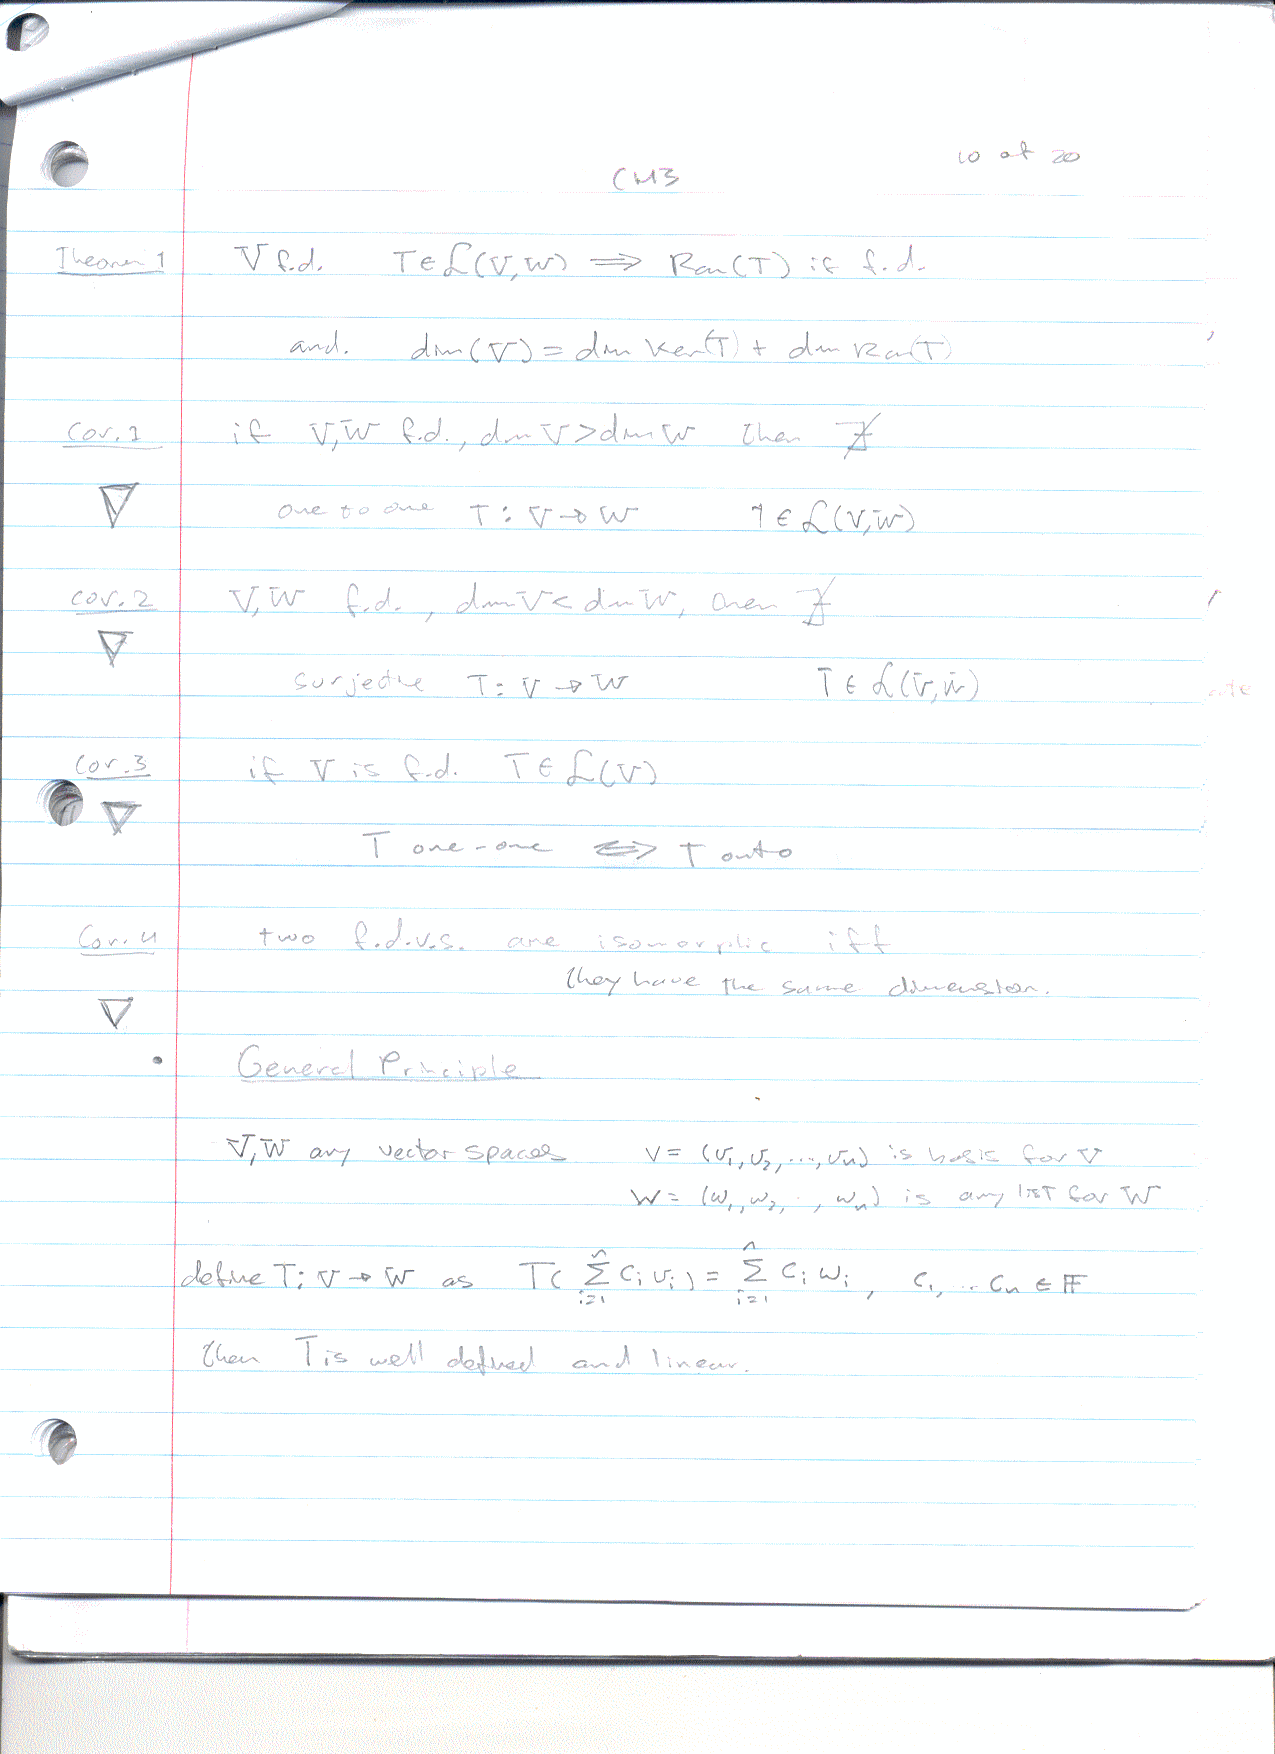 10 of 20
CH3
Theorem 1 V f.d. T ∈ ℒ(V,W) ⟹ Ran(T) if f.d.
and. dim(V) = dim Ker(T) + dim Ran(T)
Cor. 1 if V,W f.d., dim V > dim W then ∄
one to one T : V → W T ∈ ℒ(V,W)
Cor. 2 V,W f.d., dim V < dim W, then ∄
surjective T : V → W T ∈ ℒ(V,W)
Cor. 3 if V is f.d. T ∈ ℒ(V)
T one-one ⟺ T onto
Cor. 4 two f.d.v.s. are isomorphic iff
they have the same dimension.
• General Principle
V,W any vector spaces V = (v₁, v₂, ..., vₙ) is basis for V
W = (w₁, w₂, .., wₙ) is any list for W
define T: V → W as T( ∑ᵢ₌₁ⁿ cᵢ vᵢ) = ∑ᵢ₌₁ⁿ cᵢ wᵢ , c₁, ... cₙ ∈ 𝔽
then T is well defined and linear.